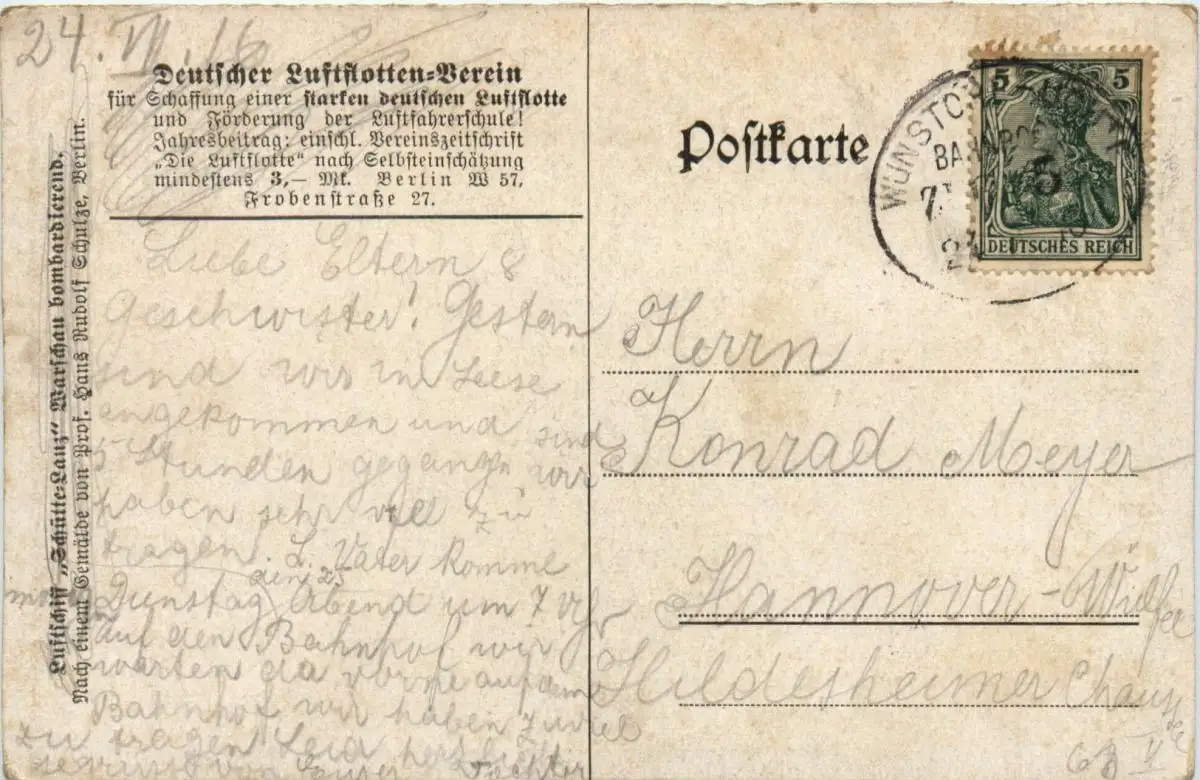 24. VII. 16
Deutscher Luftflotten-Verein
für Schaffung einer starken deutschen Luftflotte
und Förderung der Luftfahrerschule!
Jahresbeitrag: einschl. Vereinszeitschrift
„Die Luftflotte“ nach Selbsteinschätzung
mindestens 3,— Mk. Berlin W 57,
Frobenstraße 27.
Luftschiff „Schütte-Lanz“ Warschau bombardierend.
Nach einem Gemälde von Prof. Hans Rudolf Schulze, Berlin.
Liebe Eltern &
Geschwister! Gestern
sind wir in Leese
angekommen und sind
5 Stunden gegangen wir
haben sehr viel zu
tragen. L. Vater komme
den 25
Dienstag Abend um 7 Uhr
auf den Bahnhof wir
warten da vorne auf dem
Bahnhof wir haben zuviel
zu tragen Seid herzlich
gegrüßt von Eurer Tochter
Postkarte
WUNSTO
BAHNPOST
5 5
DEUTSCHES REICH
Herrn
Konrad Meyer
Hannover-Wülfel
Hildesheimer Chaussee